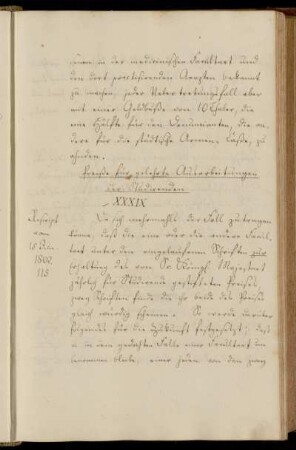 nuen in der medicinischen Facultaet und
den dort practisirenden Aerzten bekannt
zu machen, jeder Uebertretungsfall aber
mit einer Geldbuße von 10 Thaler, die
eine Hälfte für den Denuncianten, die an-
dere für die städtische Armen Casse, zu
ahnden.
Preise für gelehrte Ausarbeitungen
der Studirenden
XXXIX
Rescript
vom
1802.
113
Da sich mehrmahls der Fall zutragen
könne, daß die eine oder die andere Facul-
taet unter den eingelaufenen Schriften zur
Erhaltung des von Sr Königl. Majestaet
jährlich für Studirende gestifteten Preises
zwey Schriften finde, die ihr beide des Preises
gleich würdig scheinen: So werde hierüber
folgendes für die Zukunft festgesetzt; daß
a in dem gedachten Falle einer Facultaet un-
benommen bleibe, einer jeden von den zwey